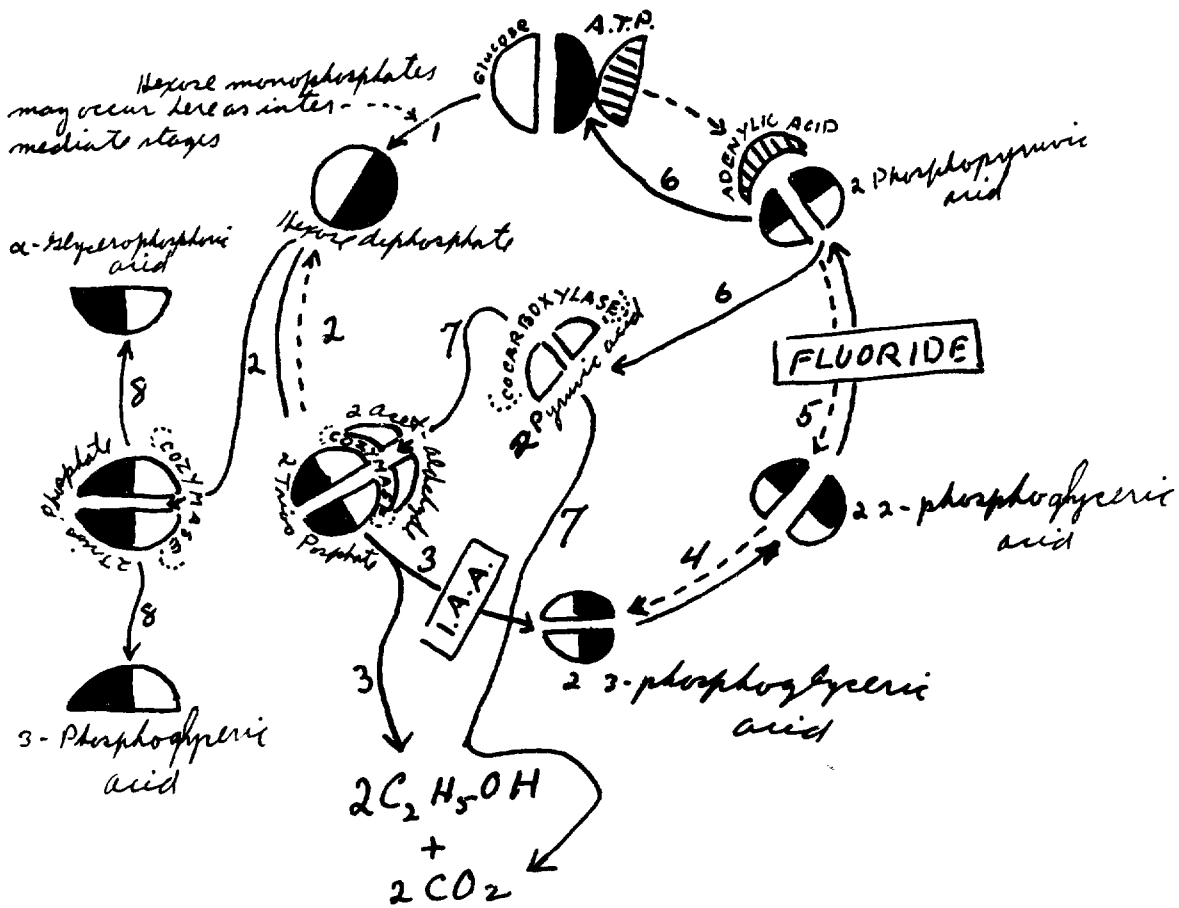 Glucose
A.T.P.
Hexose monophosphates
may occur here as inter-
mediate stages
1
ADENYLIC ACID
2 Phosphopyruvic
acid
6
Hexose diphosphate
α-Glycerophosphoric
acid
6
2
2
7
COCARBOXYLASE
2 Pyruvic acid
FLUORIDE
8
5
2 Acet-
aldehyde
COZYMASE
2 Trios Posphate
2 Trios Phosphate
COZYMASE
2 2-phosphoglyceric
acid
7
3
4
I.A.A.
8
3
2 3-phosphoglyceric
acid
3-Phosphoglyceric
acid
2C2H5OH
+
2CO2